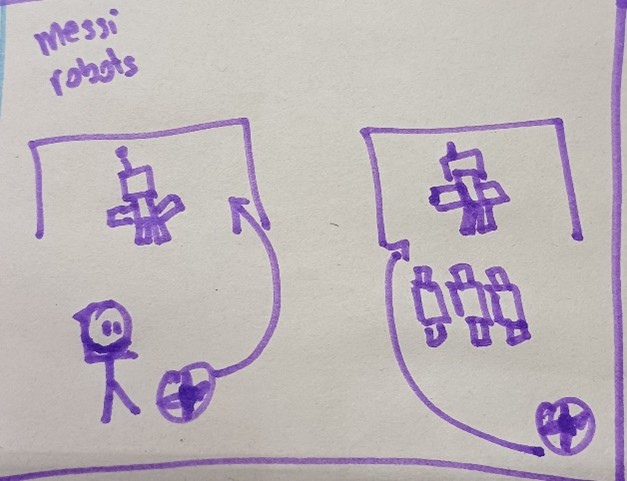 messi
robots